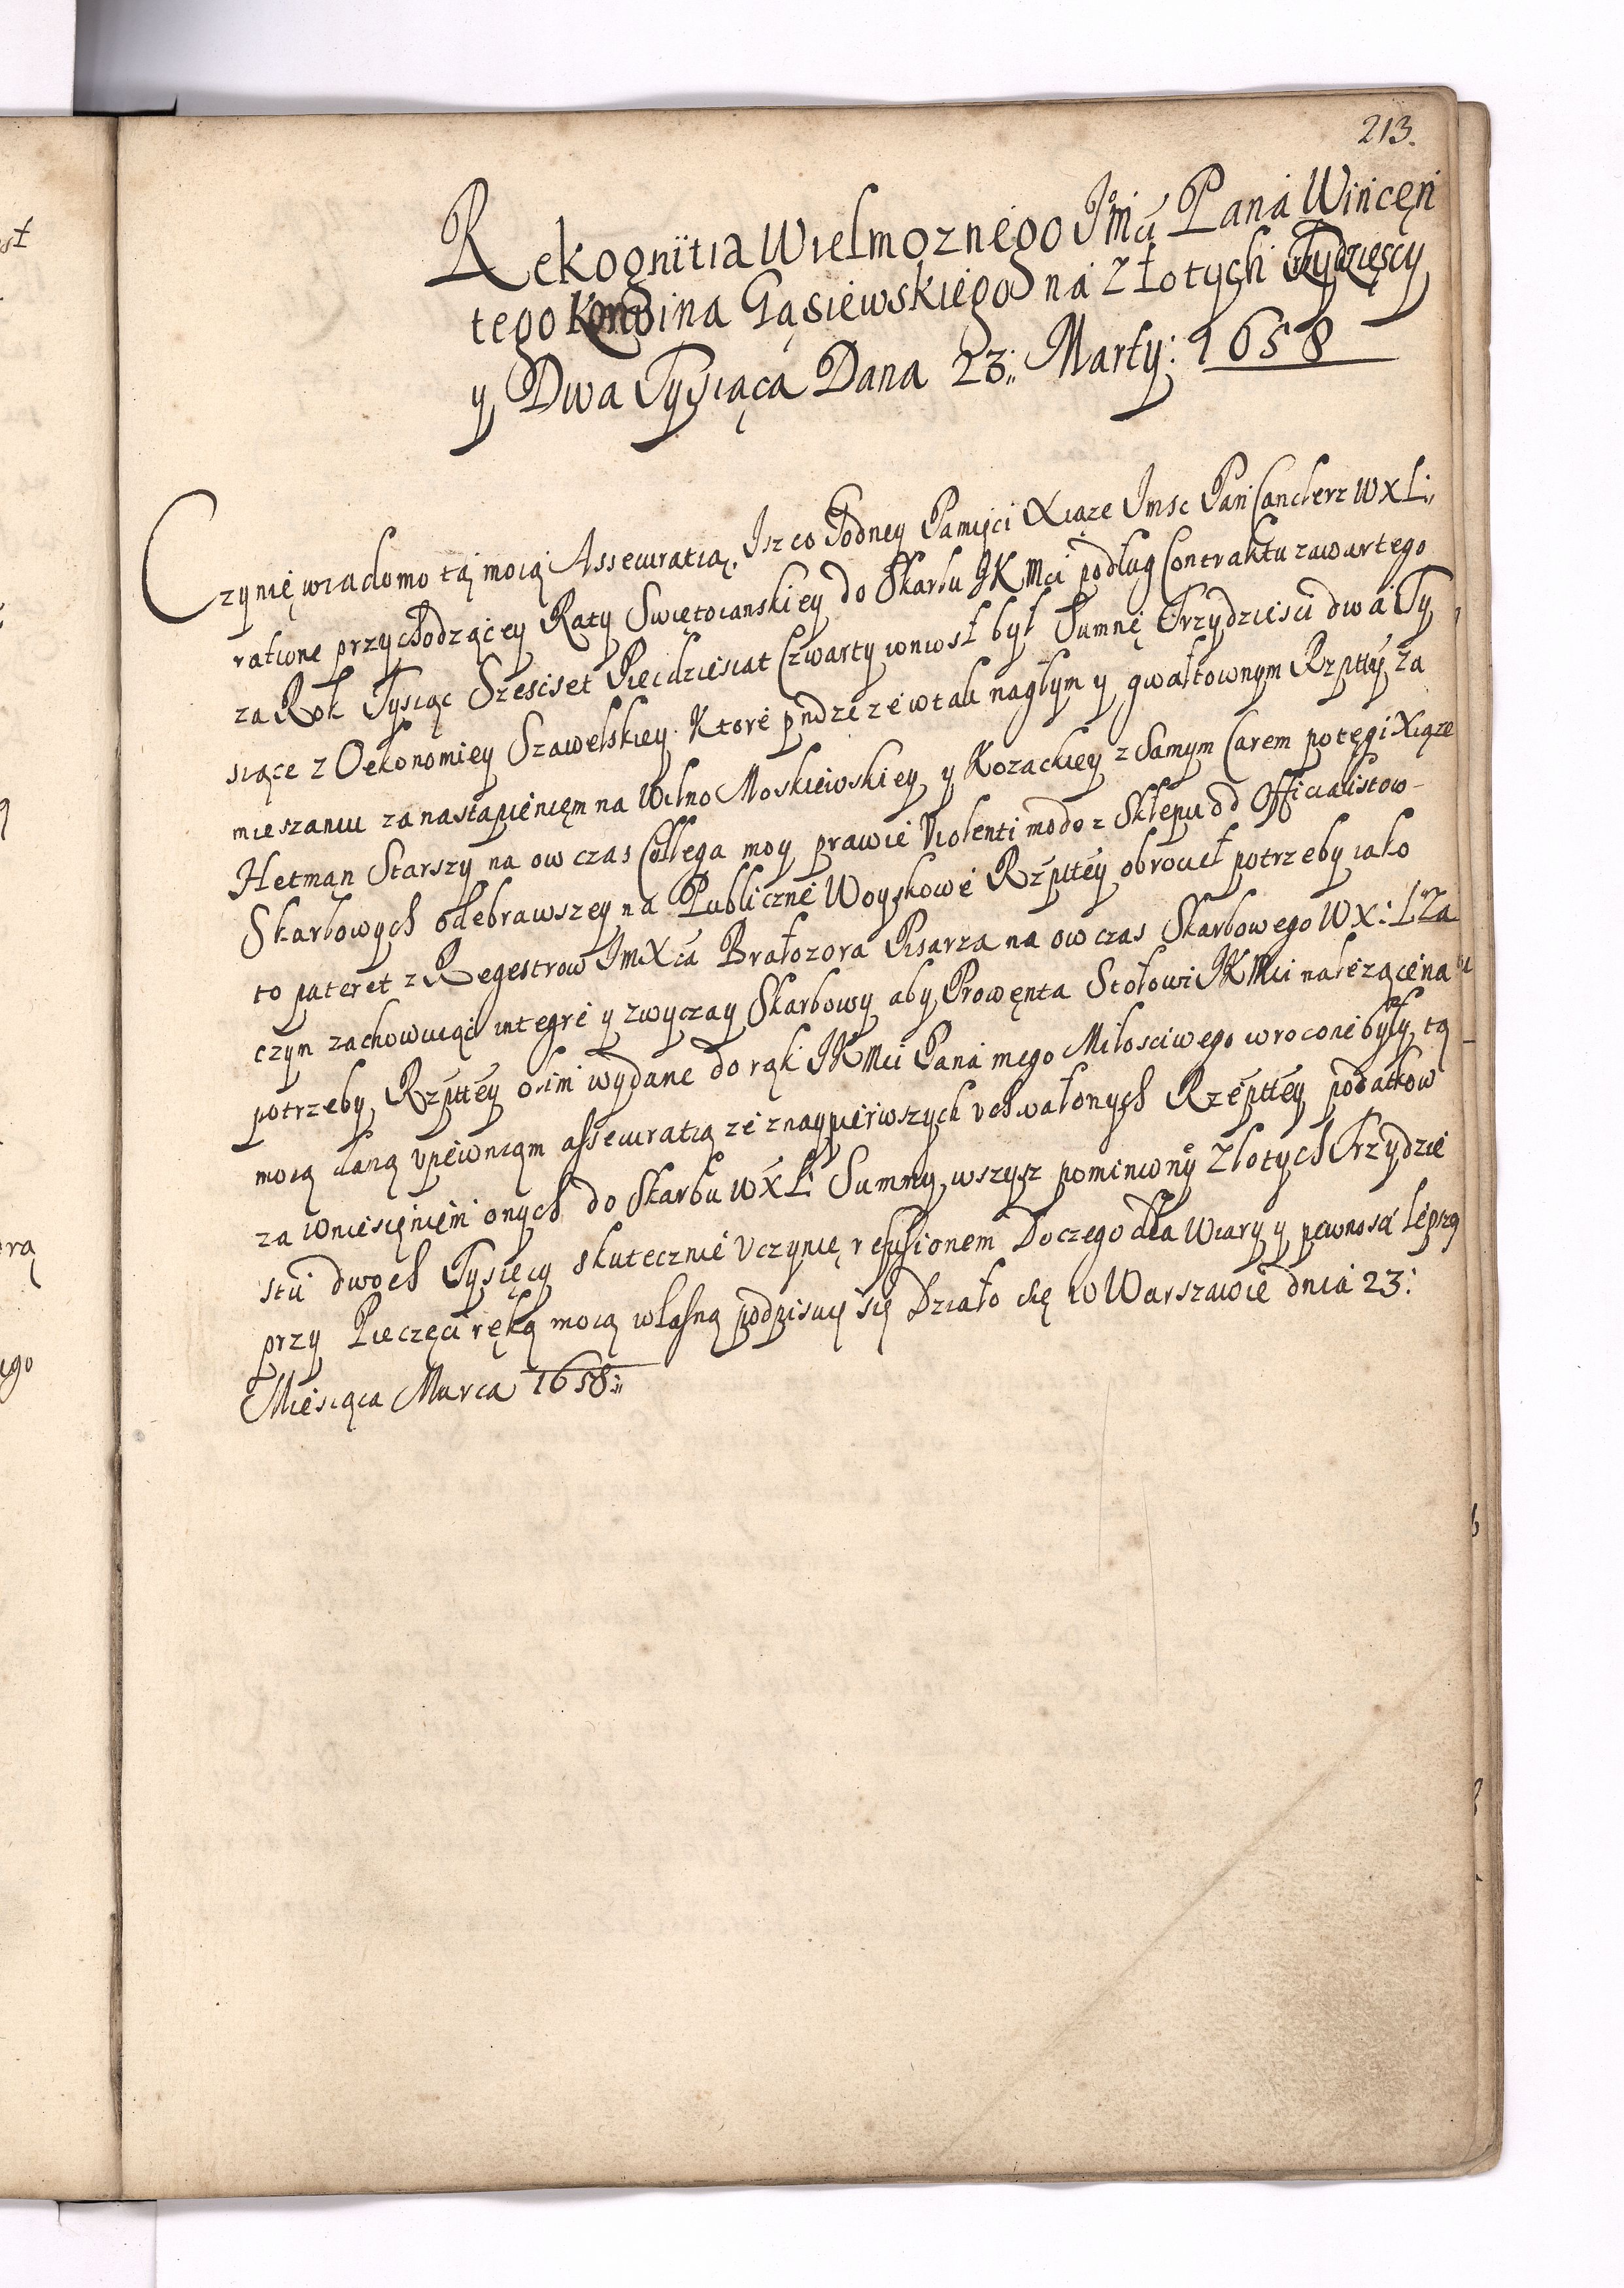 213.
Rekognitia Wielmoznego Jmci Pana Wincen
tego Gąsiewskiego na Złotych Trzydzięscy
y Dwa Tysiąca Dana 23: Marty: 1658
Czynię wiadomo tą moią Assecuratią, Isz co Godney Pamięci Xiąze Jmsc Pan Canclerz W X L:
ratione przychodzącey Raty Swiętoianskiey do Skarbu JK Mci podług Contraktu zawartego
za Rok Tysiąc Szescset Piecdziesiat Czwarty wniosł był Summę Trzydziesci dwa Ty
siące z Oekonomiey Szawelskiey. Ktore pndze ze w tak nagłym y gwałtownym Rzptty za
mieszaniu za nastąpienięm na Wilno Moskiewskiey y Kozackiey z Samym Carem potęgi Xiąze
Hetman Starszy na ow czas Collega moy prawie Violenti modo z Sklepu od Officialistow
Skarbowych odebrawszy na Publiczne Woyskowe Rzptty obrocił potrzeby iako
to pateret z Regestrow JmXa Brałozora Pisarza na ow czas Skarbowego W X: L Za
czym zachowuiąc integre y zwyczay Skarbowy aby Prowęnta Stołowi JKMci nalezące na
potrzeby Rzptty wydane do rąk JKMci Pana mego Miłosciwego wrocone były, tą
moią daną vpewniam assecuratią ze z naypierwszych vchwalonych Rzeptty podatkow
za wniesięnięm onych do Skarbu W X L Summy wszysz pominiony Złotych Trzydzie
stu dwoch Tysięcy skutecznie Vczynię refusionem Do czego dla Wiary y pewnosci lepszą
przy Pieczęci ręką moią własną podpisuię się Działo się w Warszawie dnia 23:
Miesiąca Marca 1658: